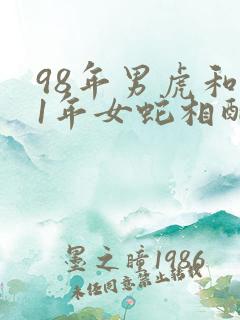 98年男虎和
1年女蛇相配
墨之瞳1986
未任同意禁止转载